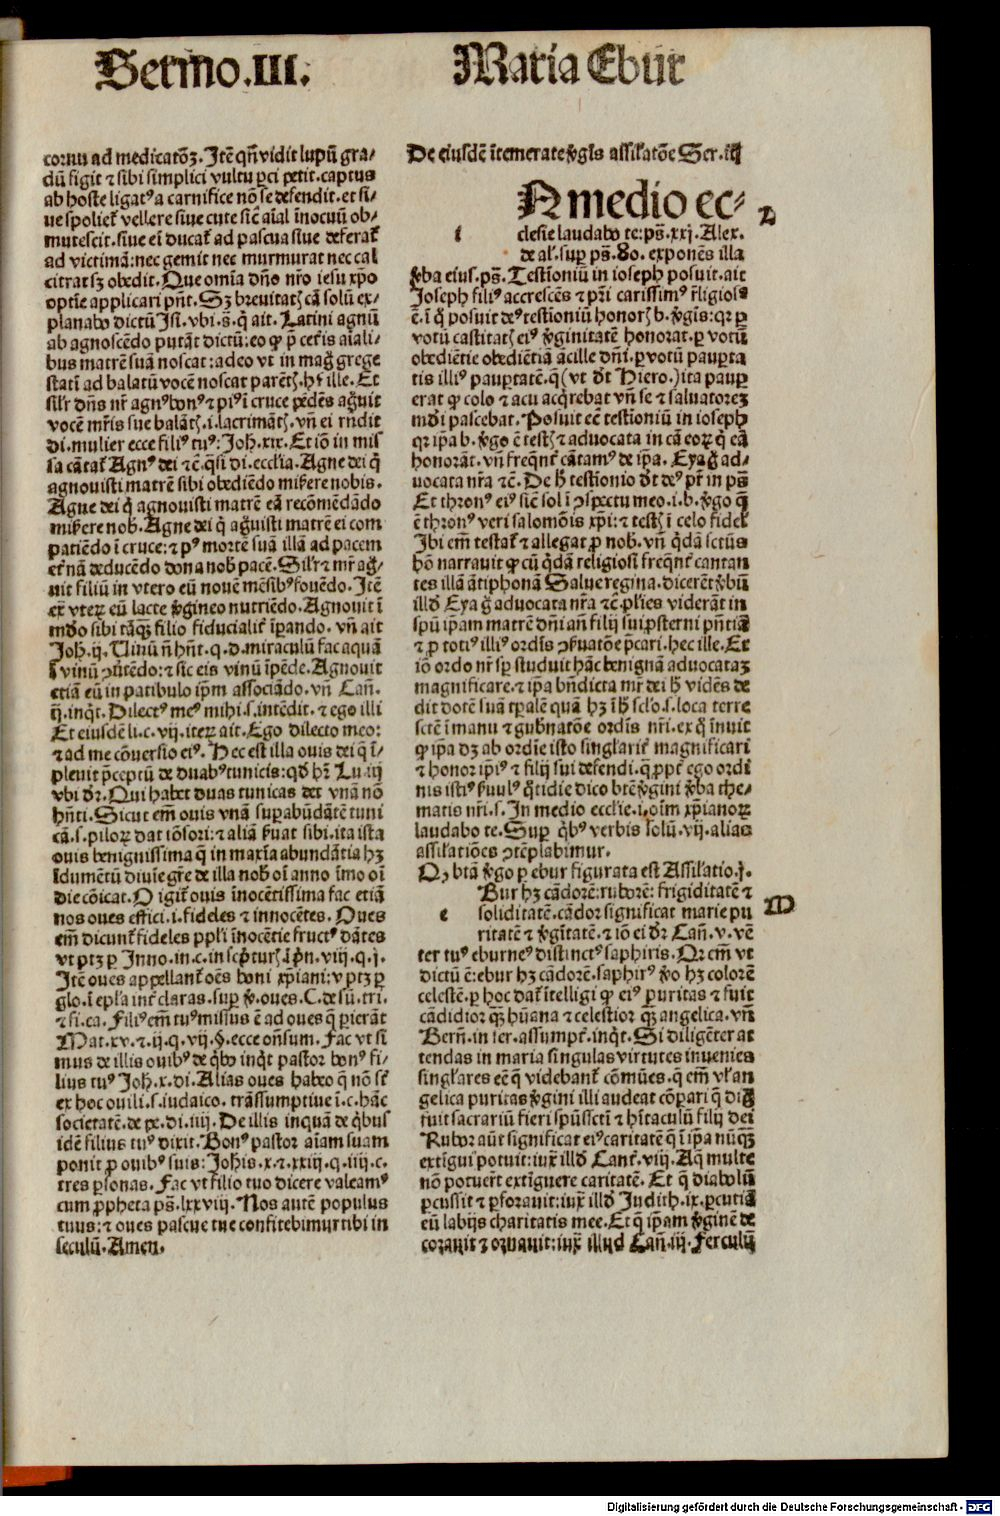 Sermo.III.
Maria Ebur
cornu ad medicatōꝫ. Itē qñ vidit lupū gra-
dū figit ⁊ sibi simplici vultu ꝑci petit. captus
ab hoste ligatꝰ a carnifice nō se defendit. et si-
ue spolieť vellere siue cute sič aīal inocuū ob-
mutescit. siue eī ducať ad pascua siue deferať
ad victimā: nec gemit nec murmurat nec cal
citrat sꝫ obedit. Que omīa dño nr̄o iesu xp̄o
optīe applicari pn̄t. Sꝫ breuitatꝭ cā solū ex-
planabo dictū Isī. vbi .s̄. q̄ ait. Latini agnū
ab agnoscēdo putāt dictū: eo ꝙ p̄ ceťis aīali-
bus matrē suā noscat: adeo vt in mag̊ grege
statī ad balatū vocē noscat parētꝭ. hꝭ ille. Et
silr̄ dñs nr̄ agnꝰ bonꝰ ⁊ piꝰ ī cruce pēdēs ag̊uit
vocē mr̄is sue balātꝭ .i. lacrimātꝭ. vñ ei rn̄dit
di. mulier ecce filiꝰ tuꝰ: Joh. xix. Et iō in mis
sa cātať Agnꝰ dei ⁊c̄. q̄si di. ecclīa. Agne dei q̄
agnouisti matrē sibi obediēdo miẜere nobis.
Agne dei q̄ agnouisti matrē eā recōmēdādo
miẜere nob̄. Agne dei q̄ ag̊uisti matrē ei com
patiēdo ī cruce: ⁊ pꝰ mortē suā illā ad pacem
eťnā deducēdo dona nob̄ pacē. Silr̄ ⁊ mr̄ ag̊-
uit filiū in vtero eū nouē mēsibꝰ fouēdo. Itē
ex̄ vterꝝ eū lacte v̄gineo nutriēdo. Agnouit ī
mūdo sibi tāqꝫ filio fiducialiť īperando. vñ ait
Joh. ij. Vinū n̄ hn̄t. q. d. miraculū fac aquā
ī vinū ꝯūtēdo: ⁊ sic eis vinū īpēde. Agnouit
etiā eū in patibulo ip̄m associādo. vñ Cañ.
ij. inq̄t. Dilectꝰ meꝰ mihi .s. intēdit. ⁊ ego illi
Et eiusdē li. c. vij. iteꝝ ait. Ego dilecto meo:
⁊ ad me cōuersio eiꝰ. Hec est illa ouis dei q̄ ī-
pleuit p̄ceptū de duabꝰ tunicis: qd̄ hr̄ Lu. iij
vbi dr̄. Qui habet duas tunicas det vnā nō
hn̄ti. Sicut em̄ ouis vnā suꝑabūdātē tuni
cā .s. piloꝝ dat tōsori: ⁊ aliā ẜuat sibi. ita ista
ouis benignissima q̄ in maxīa abundātia hꝫ
īdumētū diuīe gr̄e de illa nob̄ oī anno īmo oī
die cōicat. O igiť ouis īnocētissima fac etiā
nos oues effici .i. fideles ⁊ innocētes. Oues
em̄ dicunť fideles ppl̄i īnocētie fructꝰ dātes
vt ptꝫ ꝑ Inno. in .c. in scpturꝭ ī pn̄. viij. q. j.
Itē oues appellanť oēs boni xp̄iani: v ptꝫ ꝑ
glo. ī epl̄a inť claras. suꝑ v̄. oues. C. de sū. tri.
⁊ fi. ca. Filiꝰ em̄ tuꝰ missus ē ad oues q̄ ꝑierāt
Mat. xv. ⁊ .ij. q. vij. §. ecce oñsum. Fac vt si
mus de illis ouibꝰ de q̄bꝰ inq̄t pastor bonꝰ fi-
lius tuꝰ Joh. x. di. Alias oues habeo q̄ nō sť
ex hoc ouili .s. iudaico. trāssumptiue ī. c. hāc
societatē. de pe. di. iiij. De illis inquā de q̄bus
idē filius tuꝰ dixit. Bonꝰ pastor aīam suam
ponit ꝓ ouibꝰ suis: Johis. x. ⁊. xxiij. q. iiij. c.
tres ꝑsonas. Fac vt filio tuo dicere valeamꝰ
cum ꝓpheta ps̄. lxxviij. Nos autē populus
tuus: ⁊ oues pascue tue confitebimur tibi in
seculū. Amen.
De eiusdē ītemerate v̄gīs assiľatōe Ser. iij
IN medio ec-
i
clesie laudabo te: ps̄. xxj. Alex.
de al̄. suꝑ ps̄. 80. exponēs illa
v̄ba eiꝰ. ps̄. Testīoniū in ioseph posuit. ait
Joseph filiꝰ accrescēs ⁊ pr̄i carissimꝰ r̄ligiosꝰ
ē. ī q̄ posuit deꝰ testioniū honorꝭ b. v̄gīs: qꝛ ꝑ
votū castitatꝭ eiꝰ v̄ginitatē honorat. ꝑ votū
obediētie obediētiā ācille dn̄i. ꝑ votū pauꝑta
tis illiꝰ pauꝑtatē. q̄ (vt dt̄ Hiero.) ita pauꝑ
erat ꝙ colo ⁊ acu acq̄rebat vñ se ⁊ saluatoreꝫ
mūdi pascebat. Posuit eē testīoniū in ioseph
qꝛ ip̄a b. v̄go ē testꝭ ⁊ aduocata in cā eoꝝ q̄ eā
honorāt. vñ freq̄nť cātamꝰ de ip̄a. Eya g̊ ad-
uocata nr̄a ⁊c̄. De h̄ testīonio dt̄ deꝰ pr̄ in ps̄
Et thronꝰ eiꝰ sič sol ī ꝯspectu meo .i. b. v̄go q̄
ē thronꝰ veri salomōis xp̄i: ⁊ testꝭ ī celo fidel̄
Ibi em̄ testať ⁊ allegat ꝓ nob̄. vñ q̄dā sctūs
hō narrauit ꝙ cū q̄dā religiosi freq̄nť cantan
tes illā ātiphonā Salue regina. dicerēt v̄bū
illd̄ Eya g̊ aduocata nr̄a ⁊c̄. pl̄ies viderāt in
sp̄u ip̄am matrē dn̄i añ filij sui ꝓsterni pn̄tiā
⁊ ꝓ totiꝰ illiꝰ ordīs ꝯẜuatōe p̄cari. hec ille. Et
iō ordo nr̄ sp̄ studuit hāc benignā aduocataꝫ
magnificare. ⁊ ip̄a bn̄dicta mr̄ dei h̄ vidēs de
dit dotē suā tꝑalē quā hꝫ ī h̄ scl̄o .s. loca terre
sctē ī manu ⁊ gub̄natōe ordīs nr̄i. ex q̄ īnuit
ꝙ ip̄a dꝫ ab ordīe isto singlariť magnificari
⁊ honor ip̄iꝰ ⁊ filij sui defendi. q̄ꝓpť ego ordi
nis istiꝰ ẜuulꝰ q̄tidie dico btē v̄gini v̄ba the-
matis nr̄i .s. In medio ecclie .i. oīm xp̄ianoꝝ
laudabo te. Suꝑ q̄bꝰ verbis solū. vij. alias
assiľatiōes ꝯtēplabimur.
Qꝫ btā v̄go ꝑ ebur figurata est Assiľatio .j.
e
Bur hꝫ cādorē: ruborē: frigiditatē ⁊
soliditatē. cādor significat marie pu
ritatē ⁊ v̄gītatē. ⁊ iō ei dr̄ Cañ. v. vē
ter tuꝰ eburneꝰ distinctꝰ saphiris. Qꝛ em̄ vt
dictū ē: ebur hꝫ cādorē. saphirꝰ v̄o hꝫ colorē
celestē. ꝑ hoc dať ītelligi ꝙ eiꝰ puritas ⁊ fuit
cādidior qꝫ hūana ⁊ celestior qꝫ angelica. vñ
Berñ. in ser. assumpť. inq̄t. Si diligēter at
tendas in maria singulas virtutes inuenies
singľares eē q̄ videbanť cōmūes. q̄ em̄ vľ an
gelica puritas v̄gini illi audeat cōꝑari q̄ dig
fuit sacrariū fieri spūssctī ⁊ hītaculū filij dei
Rubor aūt significat eiꝰ caritatē q̄ ī ip̄a nūqꝫ
extīgui potuit: iux̄ illd̄ Canť. viij. Aq̄ multe
nō potuerť extīguere caritatē. Et q̄ diabolū
ꝑcussit ⁊ ꝑforauit: iux̄ illd̄ Judith. ix. ꝑcutiā
eū labijs charitatis mee. Et q̄ ip̄am v̄ginē de
corauit ⁊ ornauit: iux̄ illud Cañ. iij. Ferculū
L
M
Digitalisierung gefördert durch die Deutsche Forschungsgemeinschaft - DFG